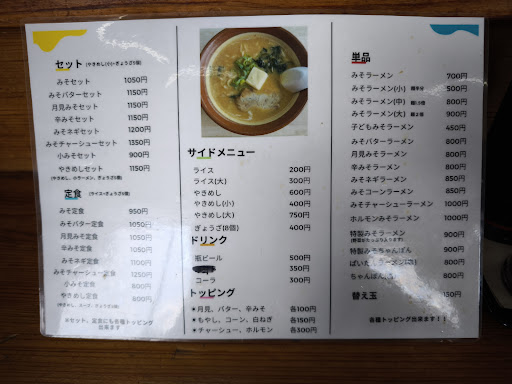 セット (やきめし(小)・ぎょうざ5個)
みそセット 1050円
みそバターセット 1150円
月見みそセット 1150円
辛みそセット 1150円
みそネギセット 1200円
みそチャーシューセット 1350円
小みそセット 900円
やきめしセット 1150円
(やきめし、小ラーメン、ぎょうざ5個)
定食 (ライス・ぎょうざ5個)
みそ定食 950円
みそバター定食 1050円
月見みそ定食 1050円
辛みそ定食 1050円
みそネギ定食 1100円
みそチャーシュー定食 1250円
小みそ定食 800円
やきめし定食 800円
(やきめし、スープ、ぎょうざ5個)
＊セット、定食にも各種トッピング
出来ます
サイドメニュー
ライス 200円
ライス(大) 300円
やきめし 600円
やきめし(小) 400円
やきめし(大) 750円
ぎょうざ(8個) 400円
ドリンク
瓶ビール 500円
350円
コーラ 300円
トッピング
＊月見、バター、辛みそ 各100円
＊もやし、コーン、白ねぎ 各150円
＊チャーシュー、ホルモン 各300円
単品
みそラーメン 700円
みそラーメン(小) 麺半分 500円
みそラーメン(中) 麺1.5倍 800円
みそラーメン(大) 麺2倍 900円
子どもみそラーメン 450円
みそバターラーメン 800円
月見みそラーメン 800円
辛みそラーメン 800円
みそネギラーメン 850円
みそコーンラーメン 850円
みそチャーシューラーメン 1000円
ホルモンみそラーメン 1000円
特製みそラーメン 900円
(野菜がたっぷり入ってます)
特製みそちゃんぽん 900円
ぱいたんラーメン 800円
ちゃんぽん 800円
替え玉 150円
各種トッピング出来ます！！